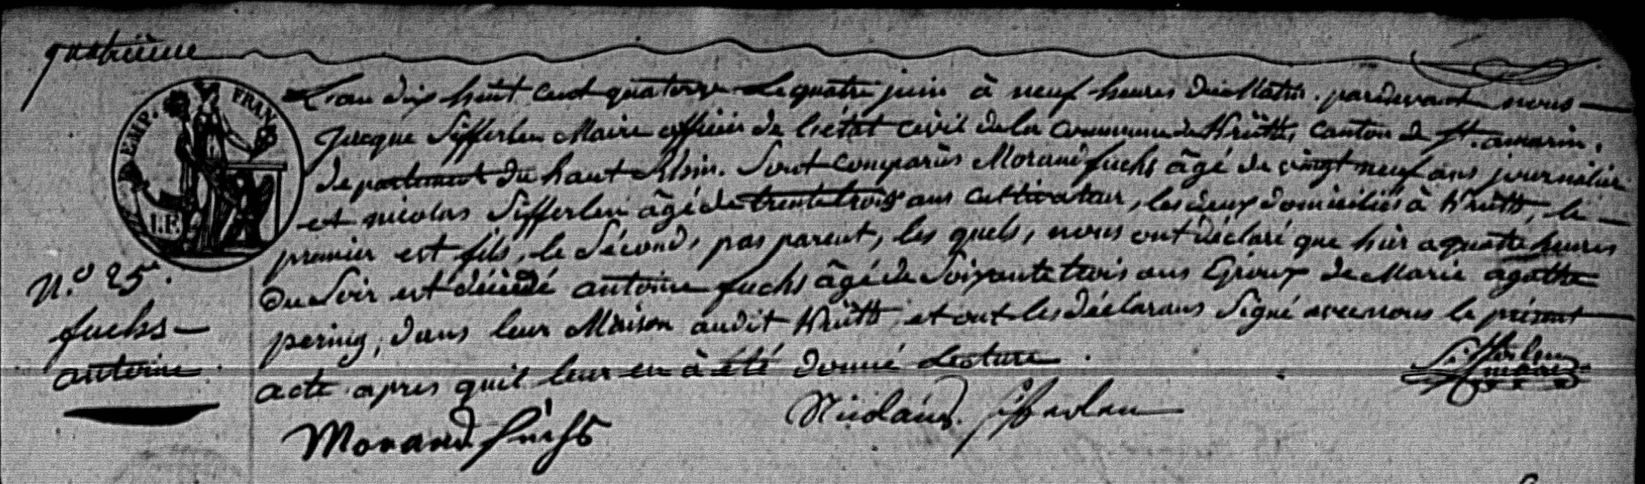 quatrième
EMP. FRAN.
L'an dix huit cent quatorze le quatre juin à neuf heures du Matin. pardevant nous
Jacque Sifferlen Maire officier de l'état civil de la Commune de Krüth, canton de St. amarin.
departement du haut Rhin. Sont comparùs Morand fuchs âgé de vingt neuf ans journalier
et nicolas Sifferlen âgé de trente trois ans cultivateur, les deux domiciliés à Krüth, le
premier est fils, le Second, pas parent, les quels, nous ont déclaré que hier a quatre heures
N.o 25.
du Soir est décédé antoine fuchs âgé de Soixante trois ans Epoux de Marie agathe
fuchs
pering, dans leur Maison audit Krüth, et ont les déclarans Signé avec nous le présent
antoine
acte apres quil leur en à été donné Lecture.
Sifferlen
maire
Morand fuchs
Nicolaus Sifferlen